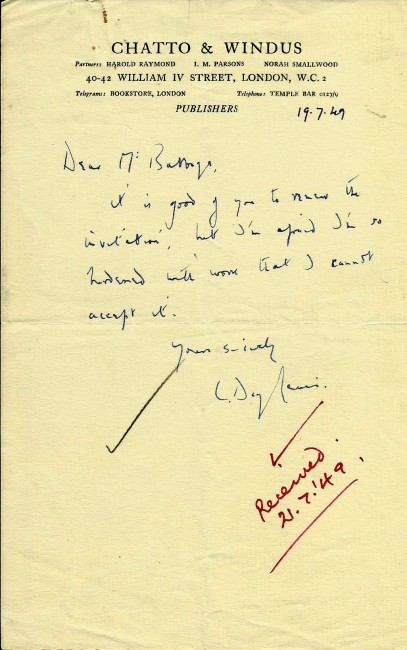 CHATTO & WINDUS
Partners: HAROLD RAYMOND I. M. PARSONS NORAH SMALLWOOD
40-42 WILLIAM IV STREET, LONDON, W.C.2
Telegrams: BOOKSTORE, LONDON Telephone: TEMPLE BAR 0127/9
PUBLISHERS
19.7.49
Dear Mr
it is good of you to renew the
invitation, but I'm afraid I'm so
burdened with work that I cannot
accept it.
Yours sincerely
C. Day Lewis.
Received.
21.7.'49.